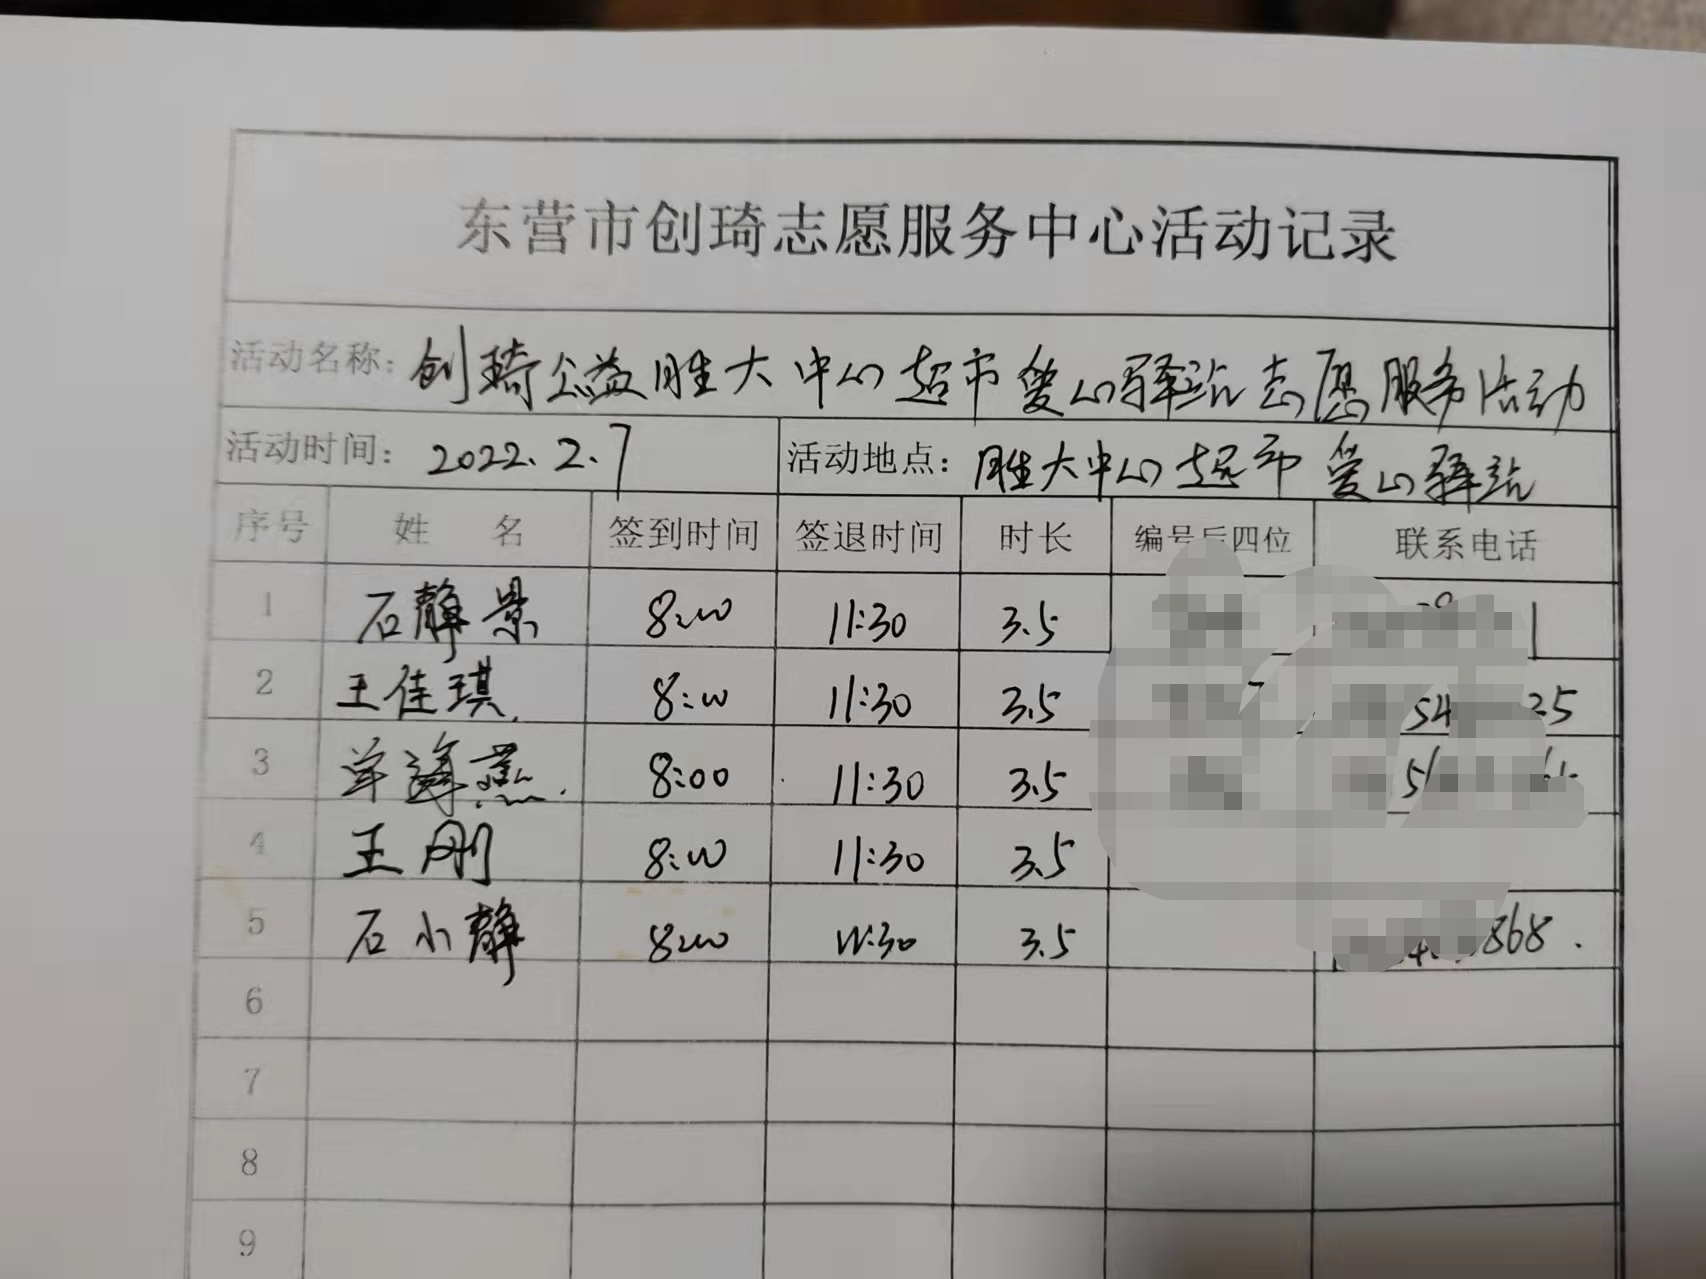 东营市创琦志愿服务中心活动记录
活动名称：创琦公益胜大中心超市爱心驿站志愿服务活动
活动时间：2022.2.7 活动地点：胜大中心超市爱心驿站
序号 姓名 签到时间 签退时间 时长 编号后四位 联系电话
1 石静景 8:00 11:30 3.5
2 王佳琪 8:00 11:30 3.5
3 单 燕 8:00 11:30 3.5
4 王刚 8:00 11:30 3.5
5 石小静 8:00 11:30 3.5 868
6
7
8
9